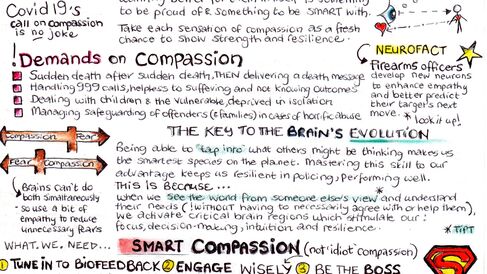 Covid19's
call on compassion
is no joke
to be proud of & something to be SMART with.
Take each sensation of compassion as a fresh
chance to show strength and resilience.
!Demands on Compassion
Sudden death after sudden death, THEN delivering a death message
Handling 999 calls, helpless to suffering and not knowing outcomes
Dealing with children & the vulnerable, deprived in isolation
Managing safeguarding of offenders (& families) in cases of horrific abuse
NEUROFACT
Firearms officers
develop new neurons
to enhance empathy
and better predict
their target's next
move.
*Look it up!
compassion Fear
Fear compassion
Brains can't do
both simultaneously
so use a bit of
empathy to reduce
unnecessary fears
THE KEY TO THE BRAIN'S EVOLUTION
Being able to "tap into" what others might be thinking makes us
the smartest species on the planet. Mastering this skill to our
advantage keeps us resilient in policing, performing well.
THIS IS BECAUSE...
when we see the world from someone else's view* and understand
their needs (without having to necessarily agree with or help them),
we activate critical brain regions which stimulate our:
focus, decision-making, intuition and resilience.
WHAT. WE. NEED... SMART COMPASSION (not 'idiot' compassion)
① TUNE IN TO BIOFEEDBACK ② ENGAGE WISELY ③ BE THE BOSS